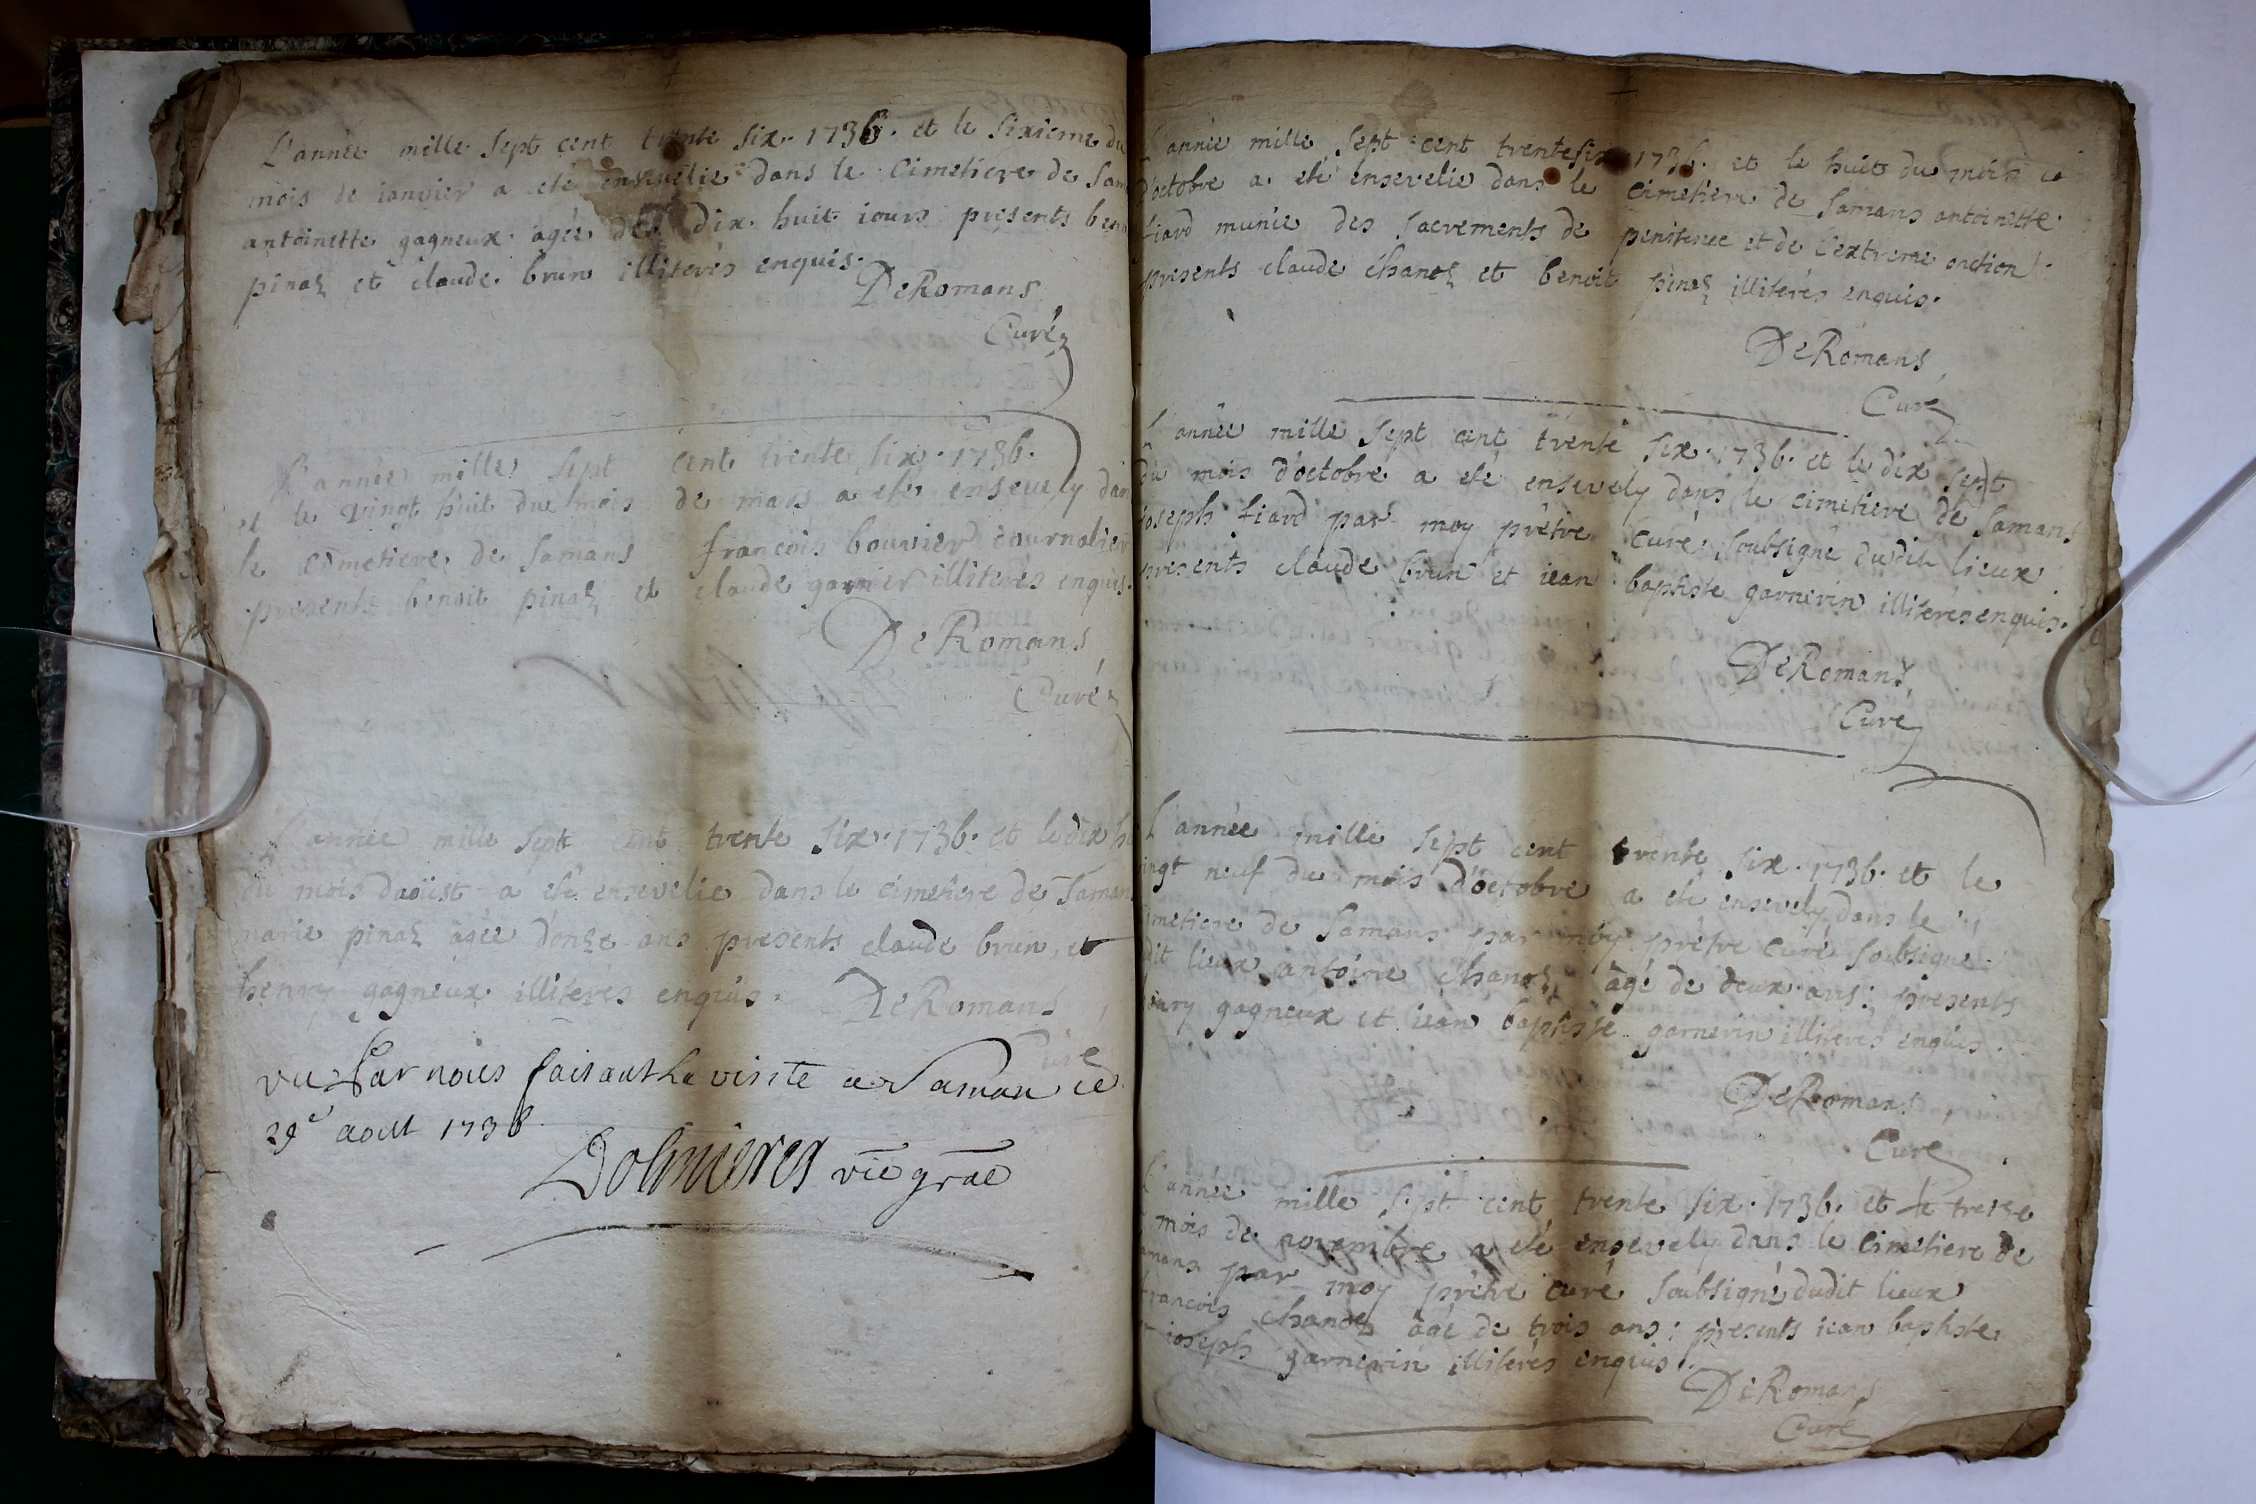 L'année mille sept cent trente six. 1736. et le sixieme du
mois de ianvier a eté ensevelie dans le Cimetiere de Sam
antoinette gagneux. agée de dix huit iours presents ben
pinaz et claude brun illiterés enquis.
DeRomans
Curé
L'année mille sept cent trente six. 1736.
et le vingt huit du mois de mars a eté ensevely dans
le cimetiere de Samans françois bouvier iournalier
presents benoit pinaz et claude garnier illiterés enquis.
DeRomans
Curé
L'année mille sept cent trente six. 1736. et le dix h
du mois daoüst a eté ensevelie dans le cimetiere de Saman
marie pinaz agée d'onze ans presents claude brun, et
henry gagneux illiterés enquis. DeRomans
Curé
vu Par nous faisant La visite a Saman ce
29e aout 1736
Dolmieres vic gral
L'année mille sept cent trente six 1736. et le huit du mois
d'octobre a eté ensevelie dans le cimetiere de Samans antoinette
fiard munie des sacrements de penitence et de l'extreme onction
presents claude chanoz et benoit pinaz illiterés enquis.
DeRomans
Curé
L'année mille sept cent trente six. 1736. et le dix sept
du mois d'octobre a eté ensevely dans le cimetiere de Samans
ioseph fiard par moy prêtre curé soubsigné dudit lieux
presents claude brun et iean baptiste garnerin illiterés enquis.
DeRomans
Curé
L'année mille sept cent trente six. 1736. et le
ingt neuf du mois d'octobre a eté ensevely dans le
imetiere de Samans par moy prêtre curé soubsigné
dit lieux antoine chanoz agé de deux ans; presents
henry gagneux et iean baptiste garnerin illiterés enquis.
DeRomans
Curé
L'année mille sept cent trente six. 1736. et le treize
mois de novembre a eté ensevely dans le cimetiere de
amans par moy prêtre curé soubsigné dudit lieux
françois chanoz âgé de trois ans; presents iean baptiste
ioseph garnerin illiterés enquis.
DeRomans
Curé